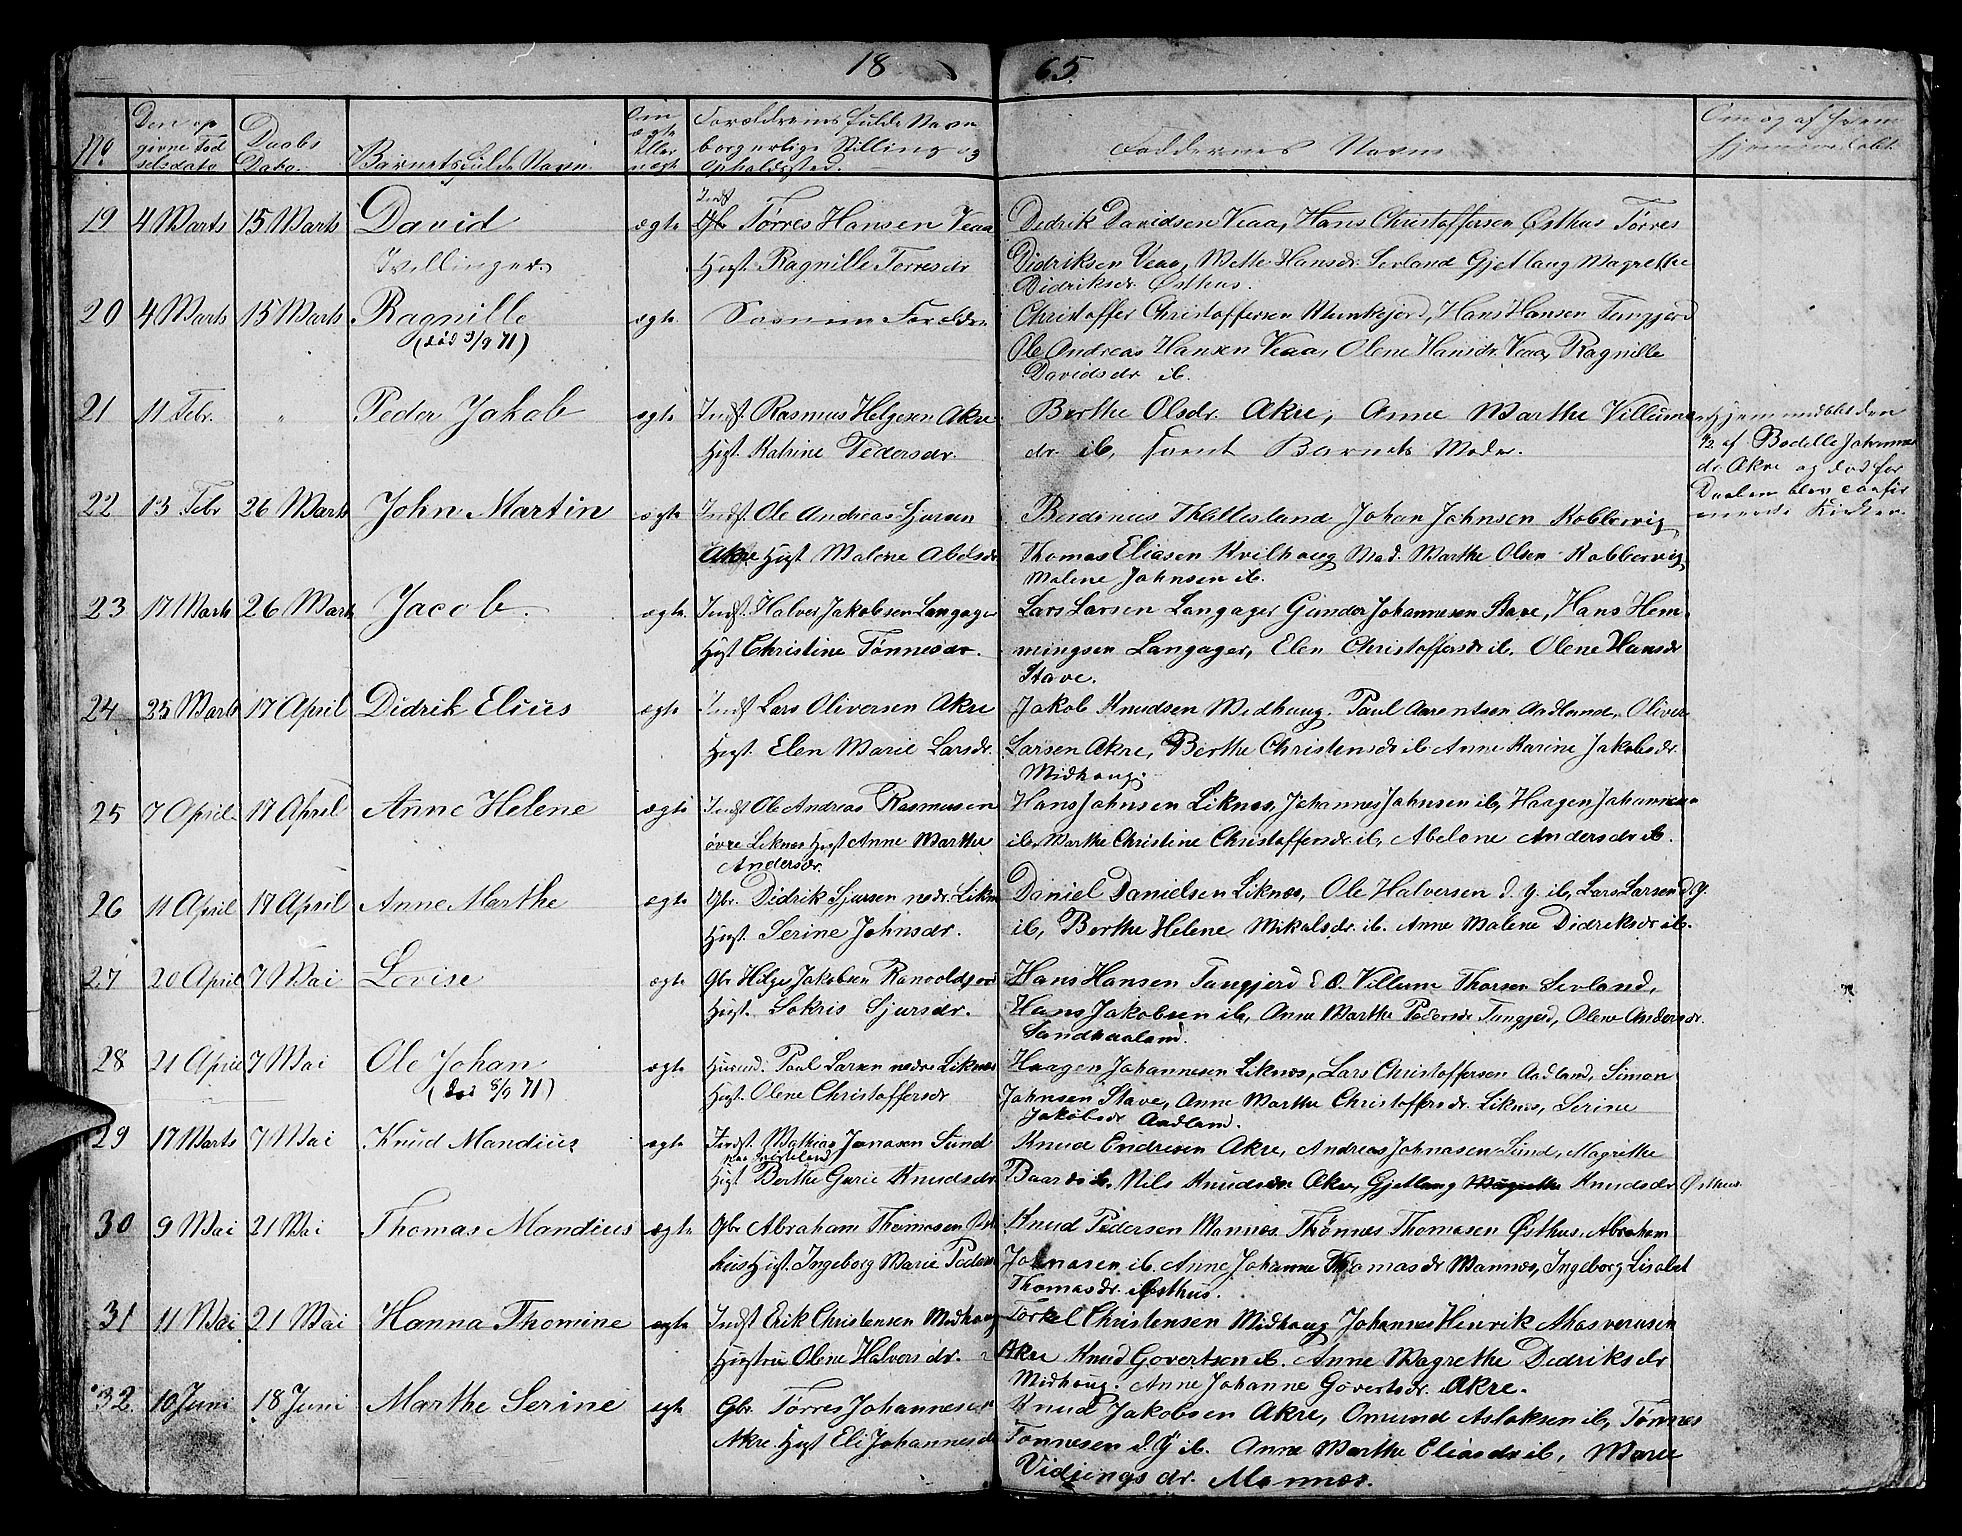 1865.
No
Den opgivne Fødselsdato
Daabs Dato.
Barnets fulde Navn.
Om ægte eller uægte
Forældrenes fulde Navn borgerlige Stilling og Opholdssted.
Faddernes Navn
Om og af hvem hjemmedøbt
19 4 Marts 15 Marts David ægte Indst Gbr Tørres Hansen Veaa Didrik Davidsen Veaa, Hans Christoffersen Østhus Tørres
Tvillinger. Hust. Ragnille Torresdr Didriksen Veaa, Mette Hansdr. Sevland Gjetlaug Magrethe
Didriksdr Østhus.
20 4 Marts 15 Marts Ragnille ægte Samme Forældre Christoffer Christoffersen Munkejord, Hans Hansen Tungjord
(død 3/9 71) Ole Andreas Hansen Veaa, Olene Hansdr. Veaa, Ragnille
Davidsdr ib.
21 11 Febr. " Peder Jakob ægte Indst. Rasmus Helgesen Akre Berthe Olsdr. Akre, Anne Marthe Villums
Hust. Katrine Pedersdr. dr. ib, samt Barnets Moder.
Hjemmedøbt den
af Bodelle Johannes
dr Akre og død før
Daaben blev confir
meret i Kirken.
22 13 Febr 26 Marts John Martin ægte Indst. Ole Andreas Sjursen Berdinius Thallesland Johan Johnsen Kobbervig
Akre Hust Malene Abelsdr Thomas Eliasen Kvilhaug Mad. Marthe Olsen Kobbervig
Malene Johnsen ib.
23 17 Marts 26 Marts Jacob. ægte Indst. Halver Jakobsen Langager Lars Larsen Langager Gunder Johannesen Stave, Hans Hem-
Hust Christine Tønnesdr. mingsen Langager, Elen Christoffersdr ib. Olene Hansdr
Stave.
24 25 Marts 17 April Didrik Elius ægte Indst Lars Oliversen Akre Jakob Knudsen Midhaug. Paul Aarentsen Aadland, Oliver
Hust. Elen Marie Larsdr. Larsen Akre, Berthe Christensdr ib Anne Karine Jakobsdr.
Midhaug.
25 7 April 17 April Anne Helene ægte Indst Ole Andreas Rasmusen Hans Johnsen Liknes, Johannes Johnsen ib, Haagen Johannesen
øvre Liknes Hust Anne Marthe ib, Marthe Christine Christoffersdr. ib, Abelone Andersdr ib.
Andersdr.
26 11 April 17 April Anne Marthe ægte Gbr. Didrik Sjursen nedr. Liknes Daniel Danielsen Liknes, Ole Halversen d. y. ib, Lars Larsen d. y.
Hust. Serine Johnsdr. ib, Berthe Helene Mikalsdr. ib. Anne Malene Didriksdr ib.
27 20 April 7 Mai Lovise ægte Gbr Helge Jakobsen Ranvoldjord Hans Hansen Tungjord d. Æ. Villum Thorsen Sevland,
Hust. Sokris Sjursdr. Hans Jakobsen ib, Anne Marthe Pedersdr Tungjord, Olene Andersdr.
Sandhaaland
28 21 April 7 Mai Ole Johan ægte Husmd. Paul Larsen nedre Liknes Haagen Johannesen Liknes, Lars Christoffersen Aadland, Simon
(død 8/9 71) Hust. Olene Christoffersdr Johnsen Stave, Anne Marthe Christoffersdr. Liknes, Serine
Jakobsdr Aadland.
29 17 Marts 7 Mai Knud Mandius ægte Indst. Mathias Jonasen Sund Knud Endresen Akre, Andreas Johnasen Sund, Magrethe
Hust Berthe Gurie Knudsdr Baardsdr ib. Nils Knudsen Akre, Gjetlaug Magrethe Knudsdr Østhus.
30 9 Mai 21 Mai Thomas Mandius ægte Gbr Abraham Thomesen Øst Knud Pedersen Mannes. Thønnes Thomasen Østhus, Abraham
hus Hust. Ingeborg Marie Pedersdr Johnasen ib. Anne Johanne Thomasdr Mannes, Ingeborg Lisabet
Thomasdr. Østhus.
31 11 Mai 21 Mai Hanna Thomine ægte Indst Erik Christensen Midhaug Torkel Christensen Midhaug Johannes Henrik Ahasverusen
Hustru Olene Halversdr. Akre Knud Govertsen ib. Anne Magrethe Didriksdr
Midhaug. Anne Johanne Govertsdr. Akre.
32 10 Juni 18 Juni Marthe Serine ægte Gbr. Torres Johannesen Knud Jakobsen Akre, Omund Aslaksen ib, Tønnes
Akre. Hust Eli Johannesdr Tonnesen d. y ib. Anne Marthe Eliasdr ib, Marie
Vidjingsdr. Mannes.